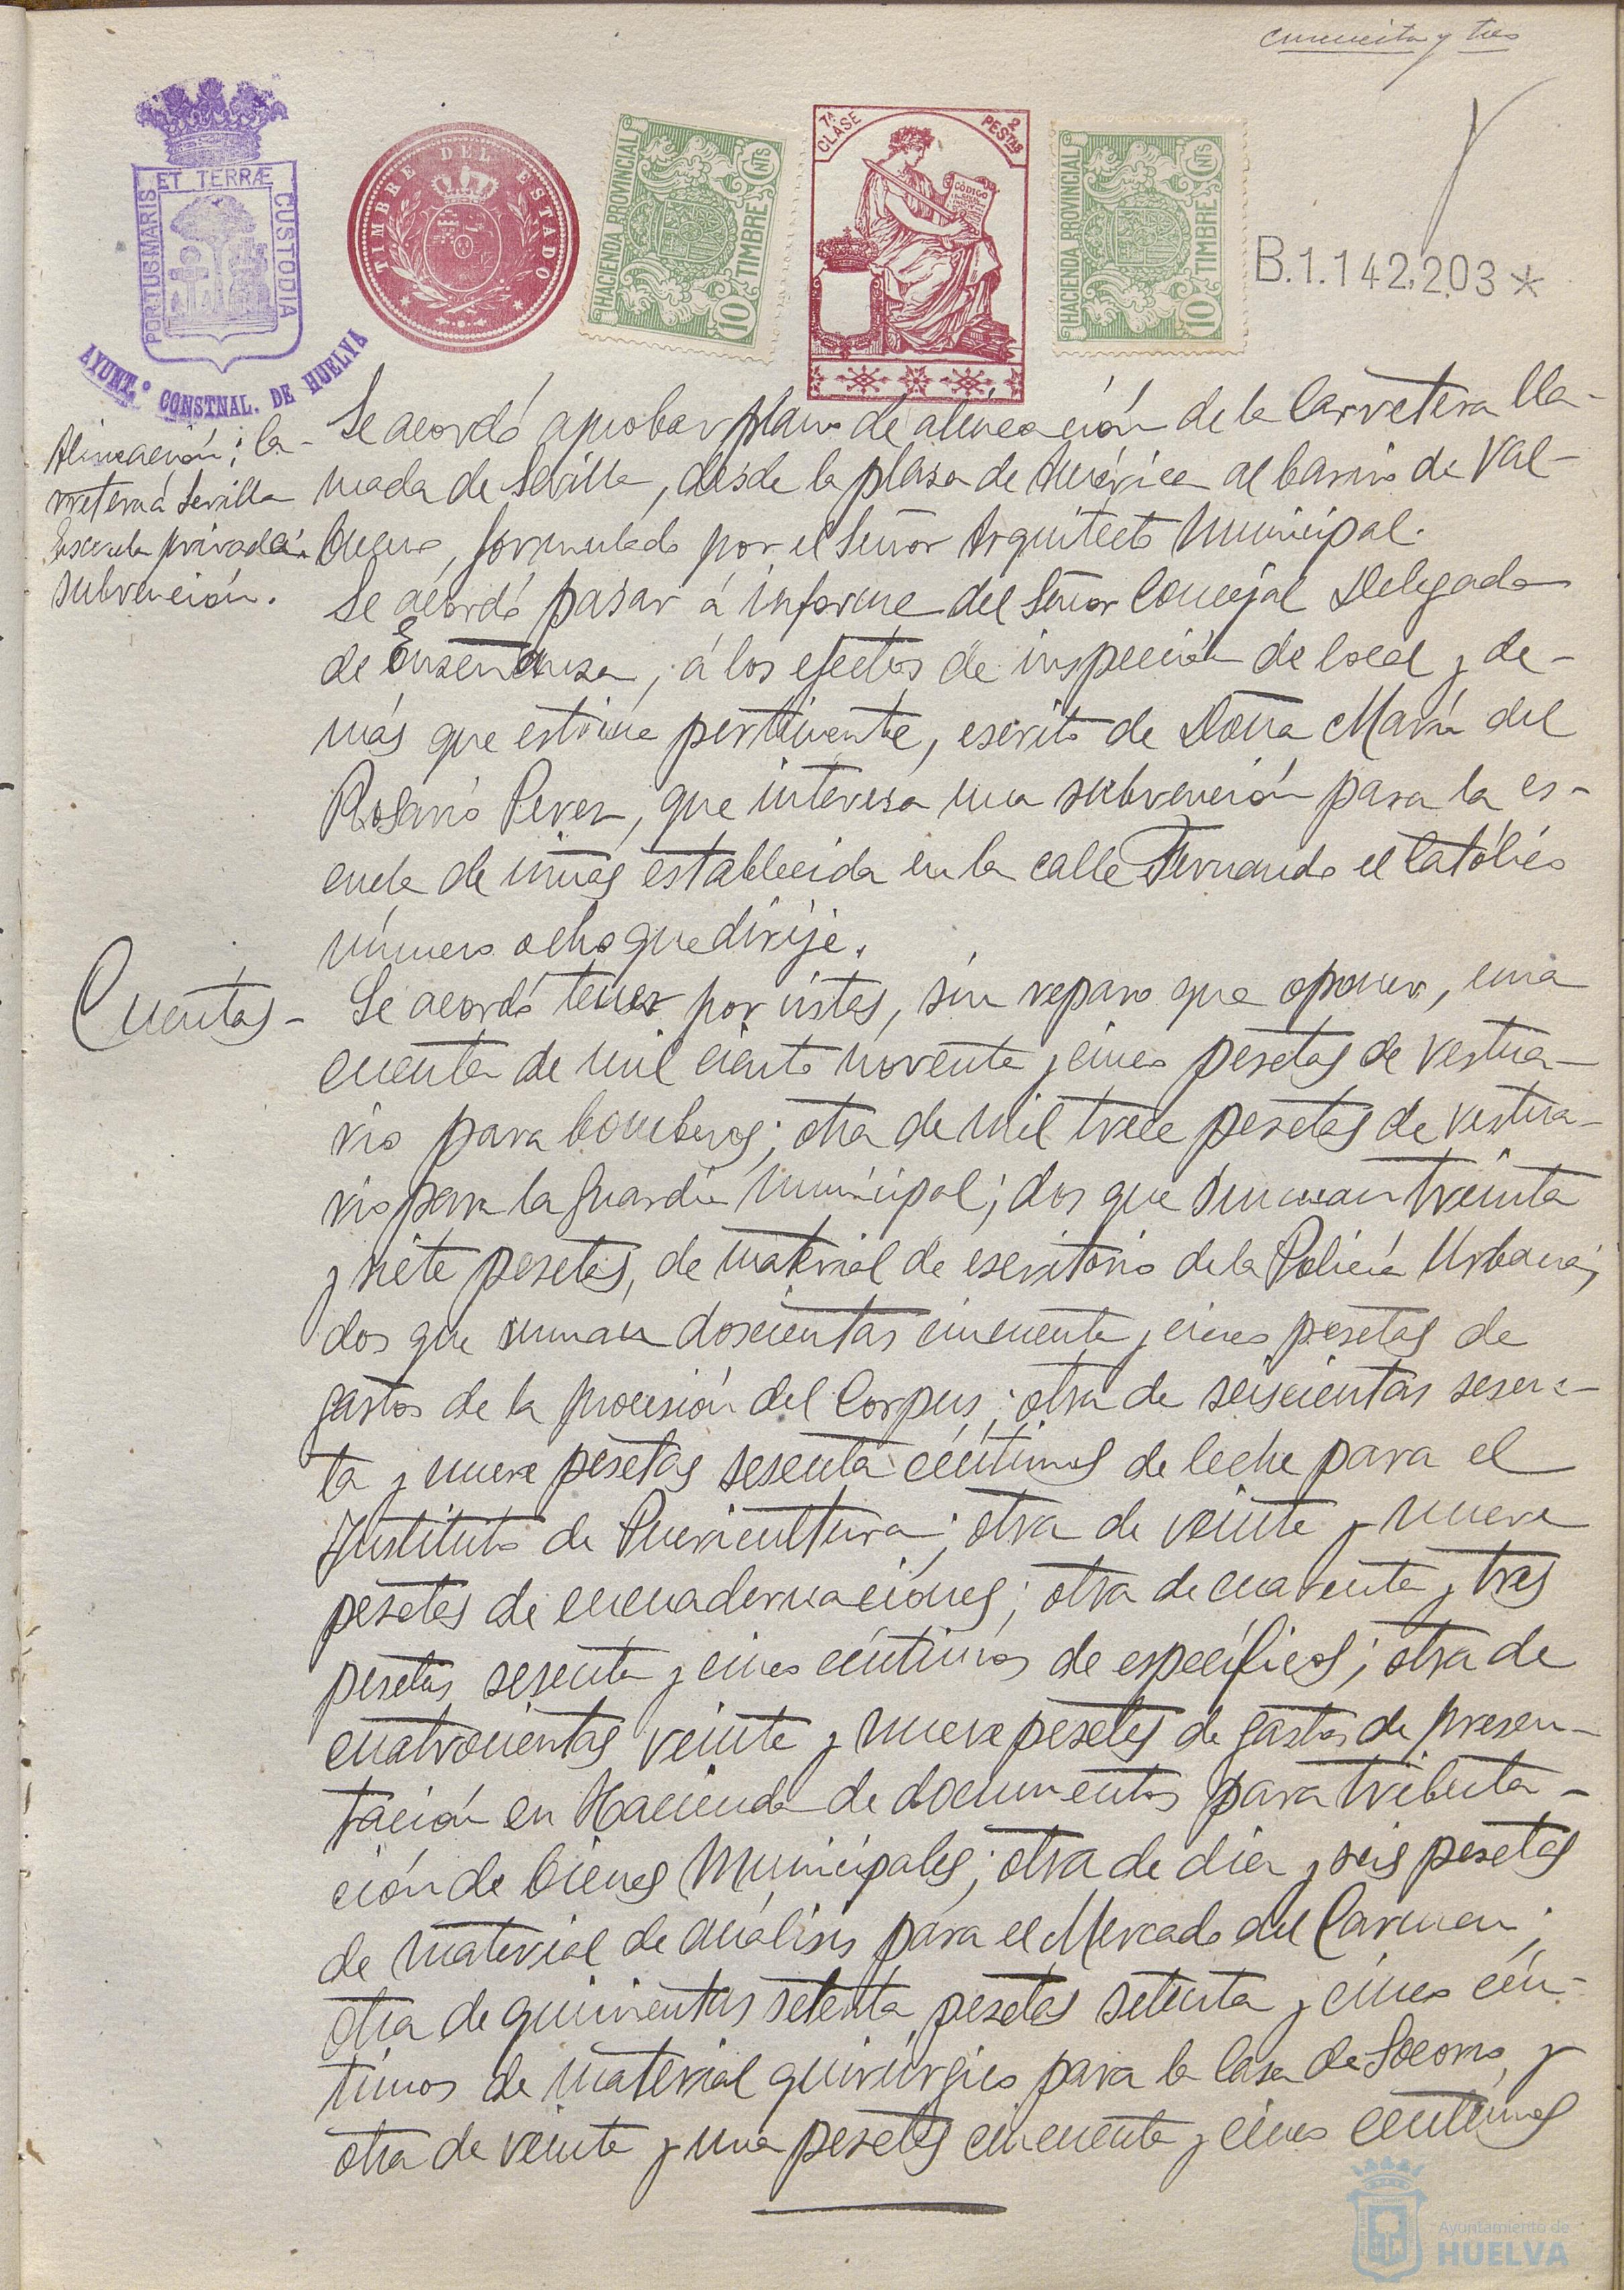 cincuenta y tres
PORTUS MARIS ET TERRÆ CUSTODIA
AYUNT.º CONSTNAL. DE HUELVA
TIMBRE DEL ESTADO
HACIENDA PROVINCIAL
10 CNTS TIMBRE
7ª CLASE
2 PESTAS
CÓDIGO
HACIENDA PROVINCIAL
10 CNTS TIMBRE
B.1.142,203*
Alineación; Ca-
rretera á Sevilla
Escuela privada:
subvención.
Se acordó aprobar plano de alineación de la Carretera lla-
mada de Sevilla, desde la plaza de América al barrio de Val-
bueno, formulado por el Señor Arquitecto Municipal.
Se acordó pasar á informe del Señor Concejal Delegado
de Enseñanza, á los efectos de inspección de local y de-
más que estime pertinente, escrito de Doña María del
Rosario Perez, que interesa una subvención para la es-
cuela de niñas establecida en la calle Fernando el Católico
número ocho que dirije.
Cuentas-
Se acordó tener por vistas, sin reparo que oponer, una
cuenta de mil ciento noventa y cinco pesetas de vestua-
rio para bomberos; otra de mil trece pesetas de vestua-
rio para la guardia Municipal; dos que suman treinta
y siete pesetas, de material de escritorio de la Policía Urbana;
dos que suman doscientas cincuenta y cinco pesetas de
gastos de la procesión del Corpus; otra de seiscientas sesen-
ta y nueve pesetas sesenta céntimos de leche para el
Instituto de Puericultura; otra de veinte y nueve
pesetas de encuadernaciones; otra de cuarenta y tres
pesetas sesenta y cinco céntimos de específicos; otra de
cuatrocientas veinte y nueve pesetas de gastos de presen-
tación en Hacienda de documentos para tributa-
ción de bienes Municipales; otra de diez y seis pesetas
de material de análisis para el Mercado del Carmen;
otra de quinientas setenta pesetas setenta y cinco cén-
timos de material quirúrgico para la Casa de Socorro, y
otra de veinte y una pesetas cincuenta y cinco centimos
Ayuntamiento de
HUELVA